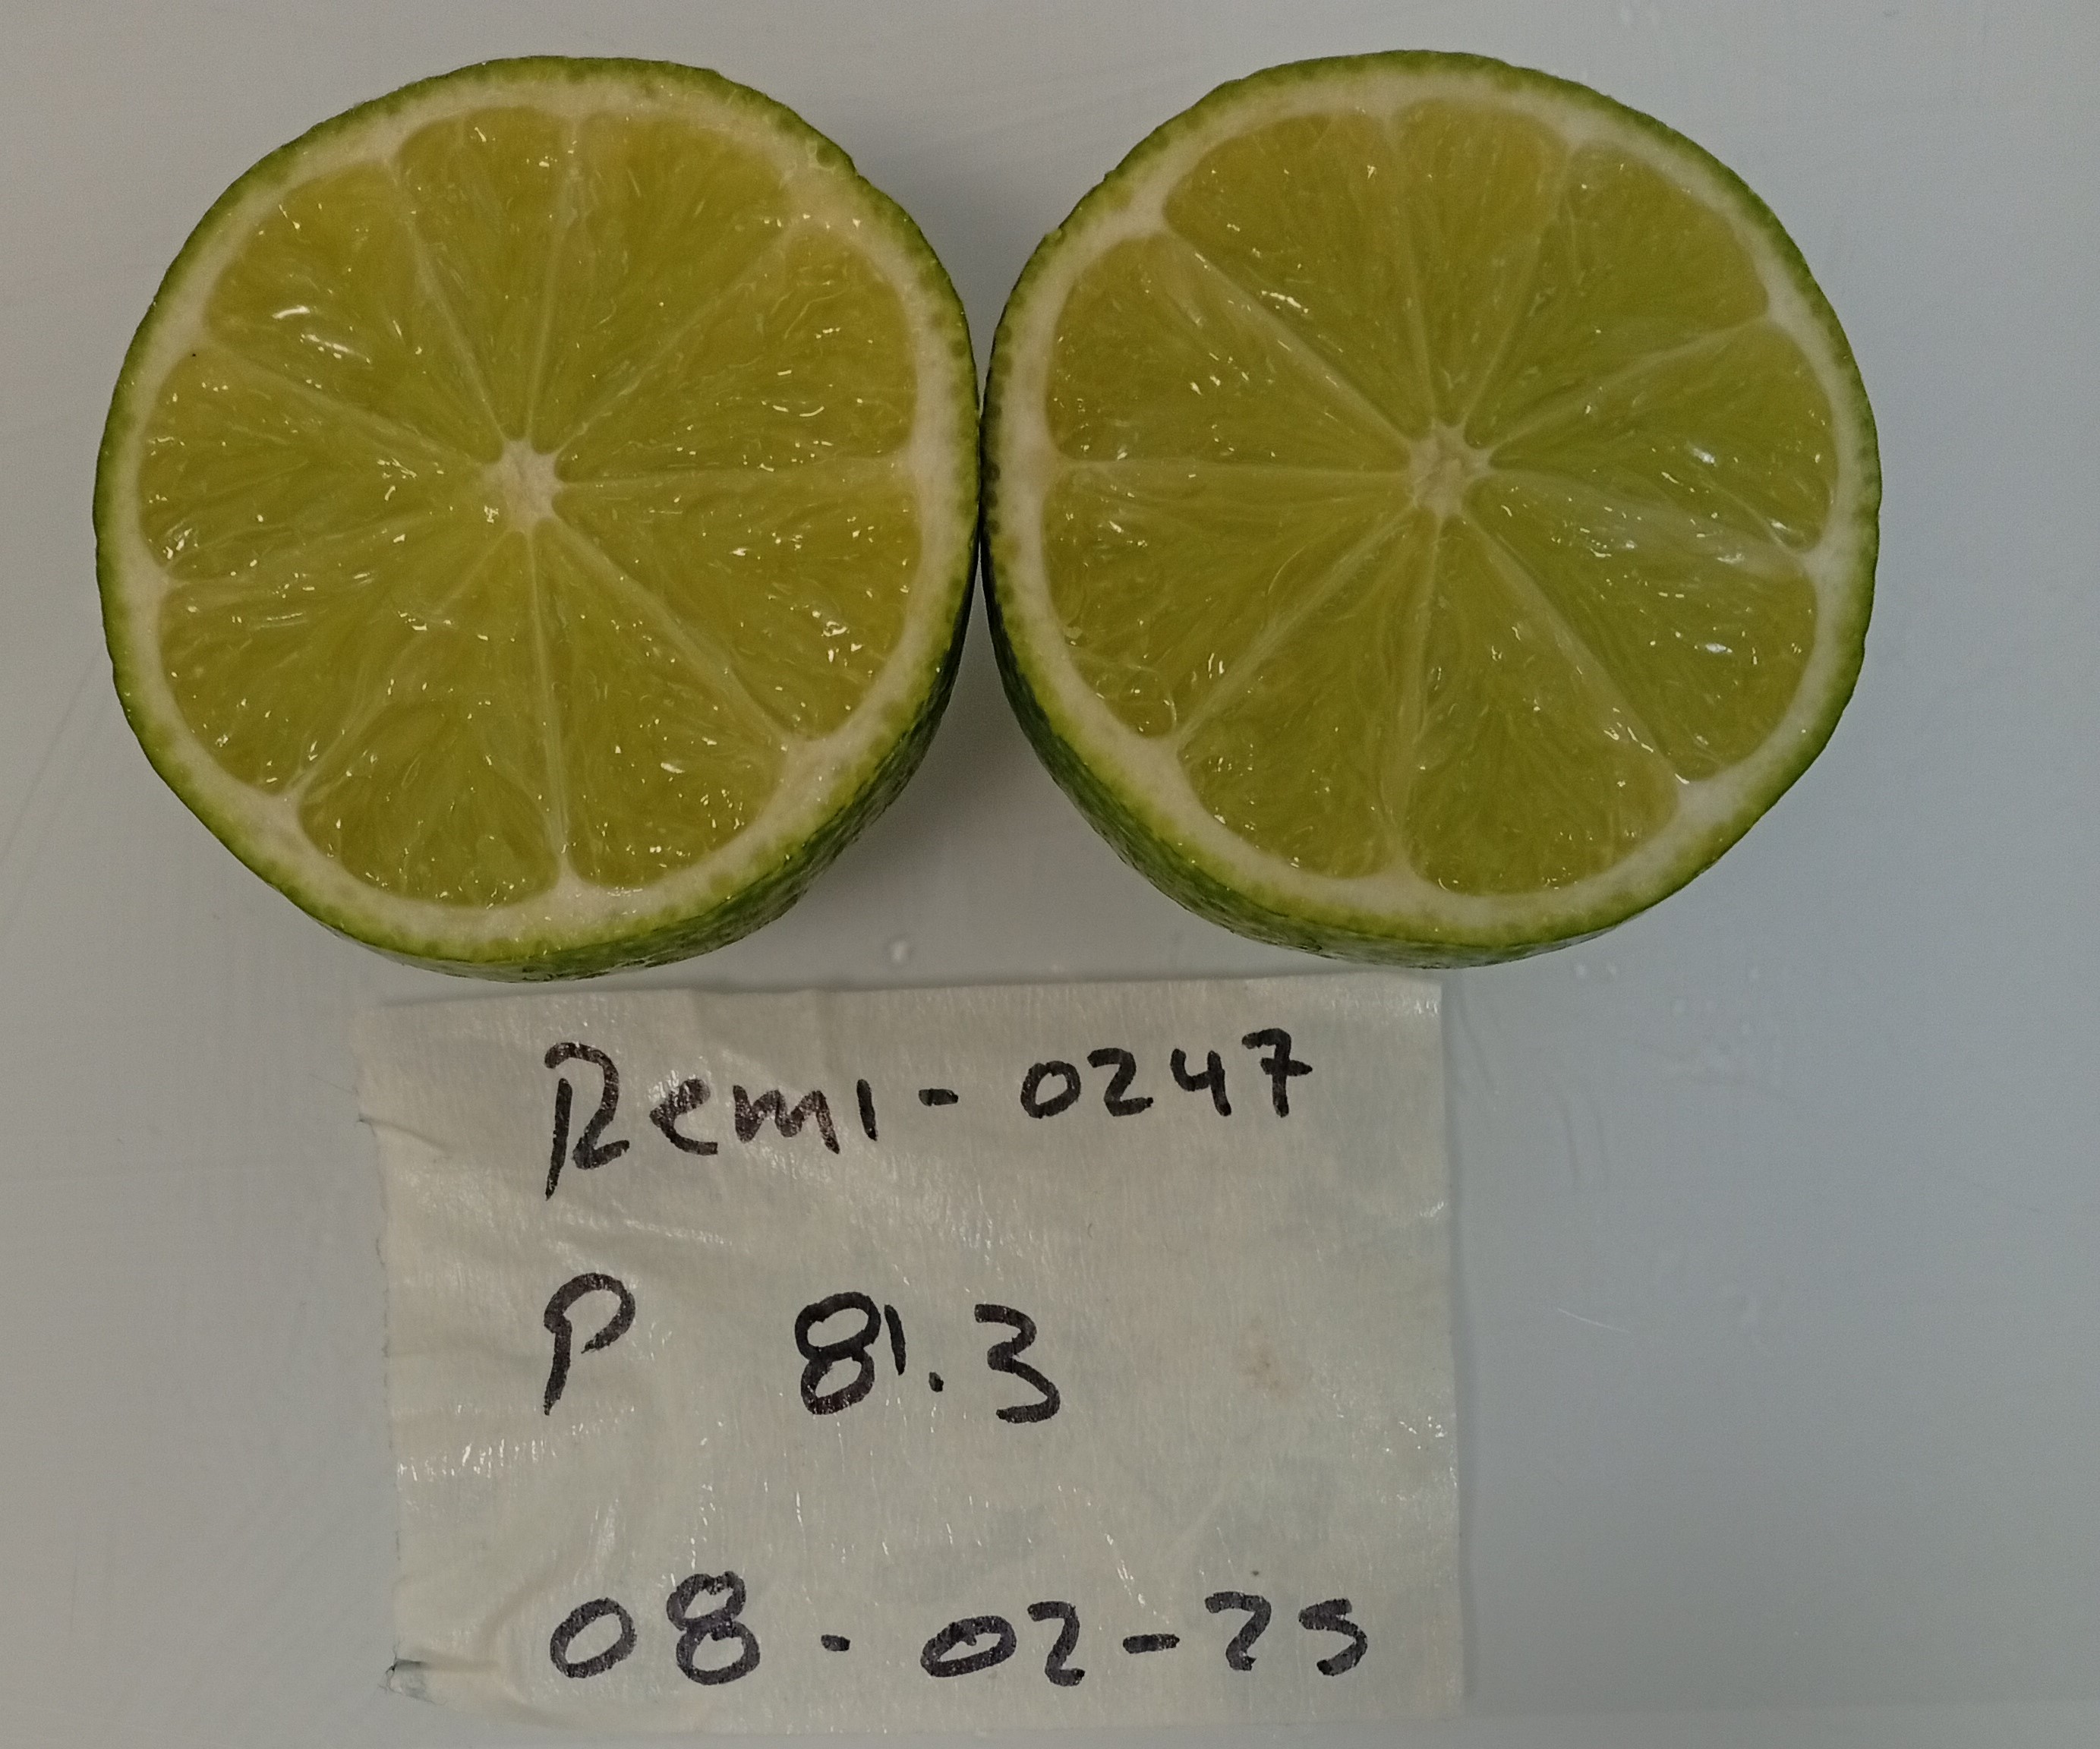 Remi-0247
P 81.3
08-02-25